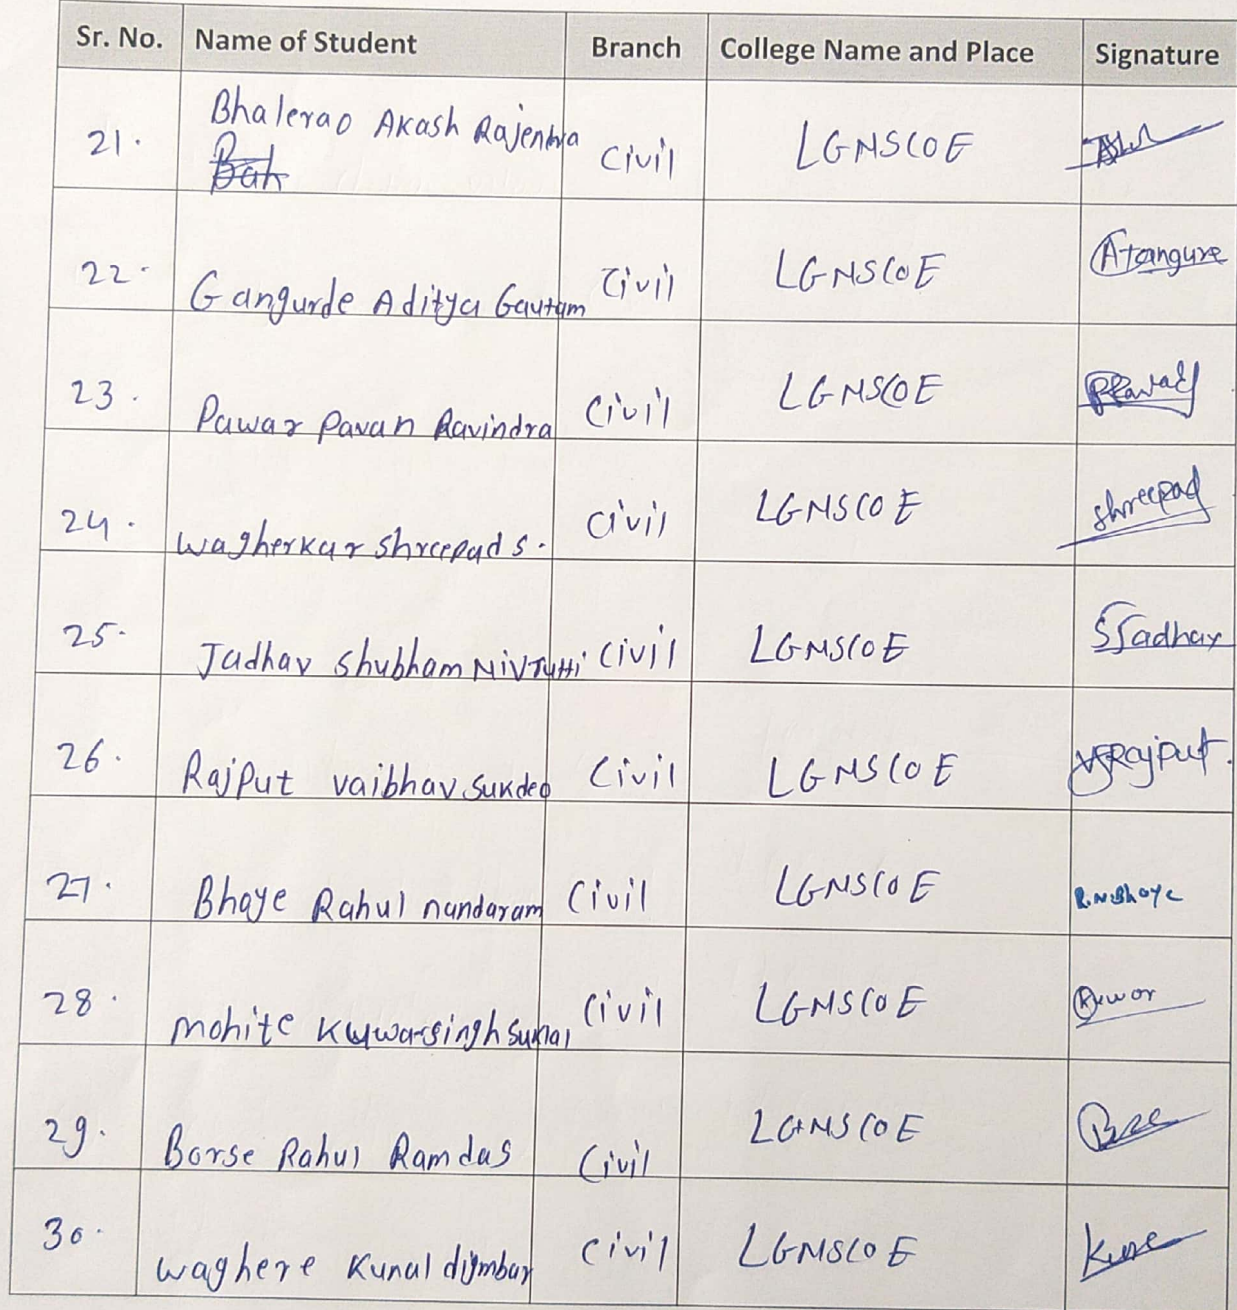 Sr. No. Name of Student Branch College Name and Place Signature
21. Bhalerao Akash Rajendra Civil LGNSCOE
22. Gangurde Aditya Gautam Civil LGNSCOE
23. Pawar Pavan Ravindra Civil LGNSCOE
24. Wagherkar Shreepad S. Civil LGNSCOE Shreepad
25. Jadhav Shubham Nivrutti Civil LGNSCOE SJadhav
26. Rajput vaibhav Sukdeo Civil LGNSCOE VSRajput.
27. Bhoye Rahul nandaram Civil LGNSCOE R.N Bhoye
28. Mohite Civil LGNSCOE
29. Borse Rahul Ramdas Civil LGNSCOE
30. Waghere Kunal Civil LGNSCOE